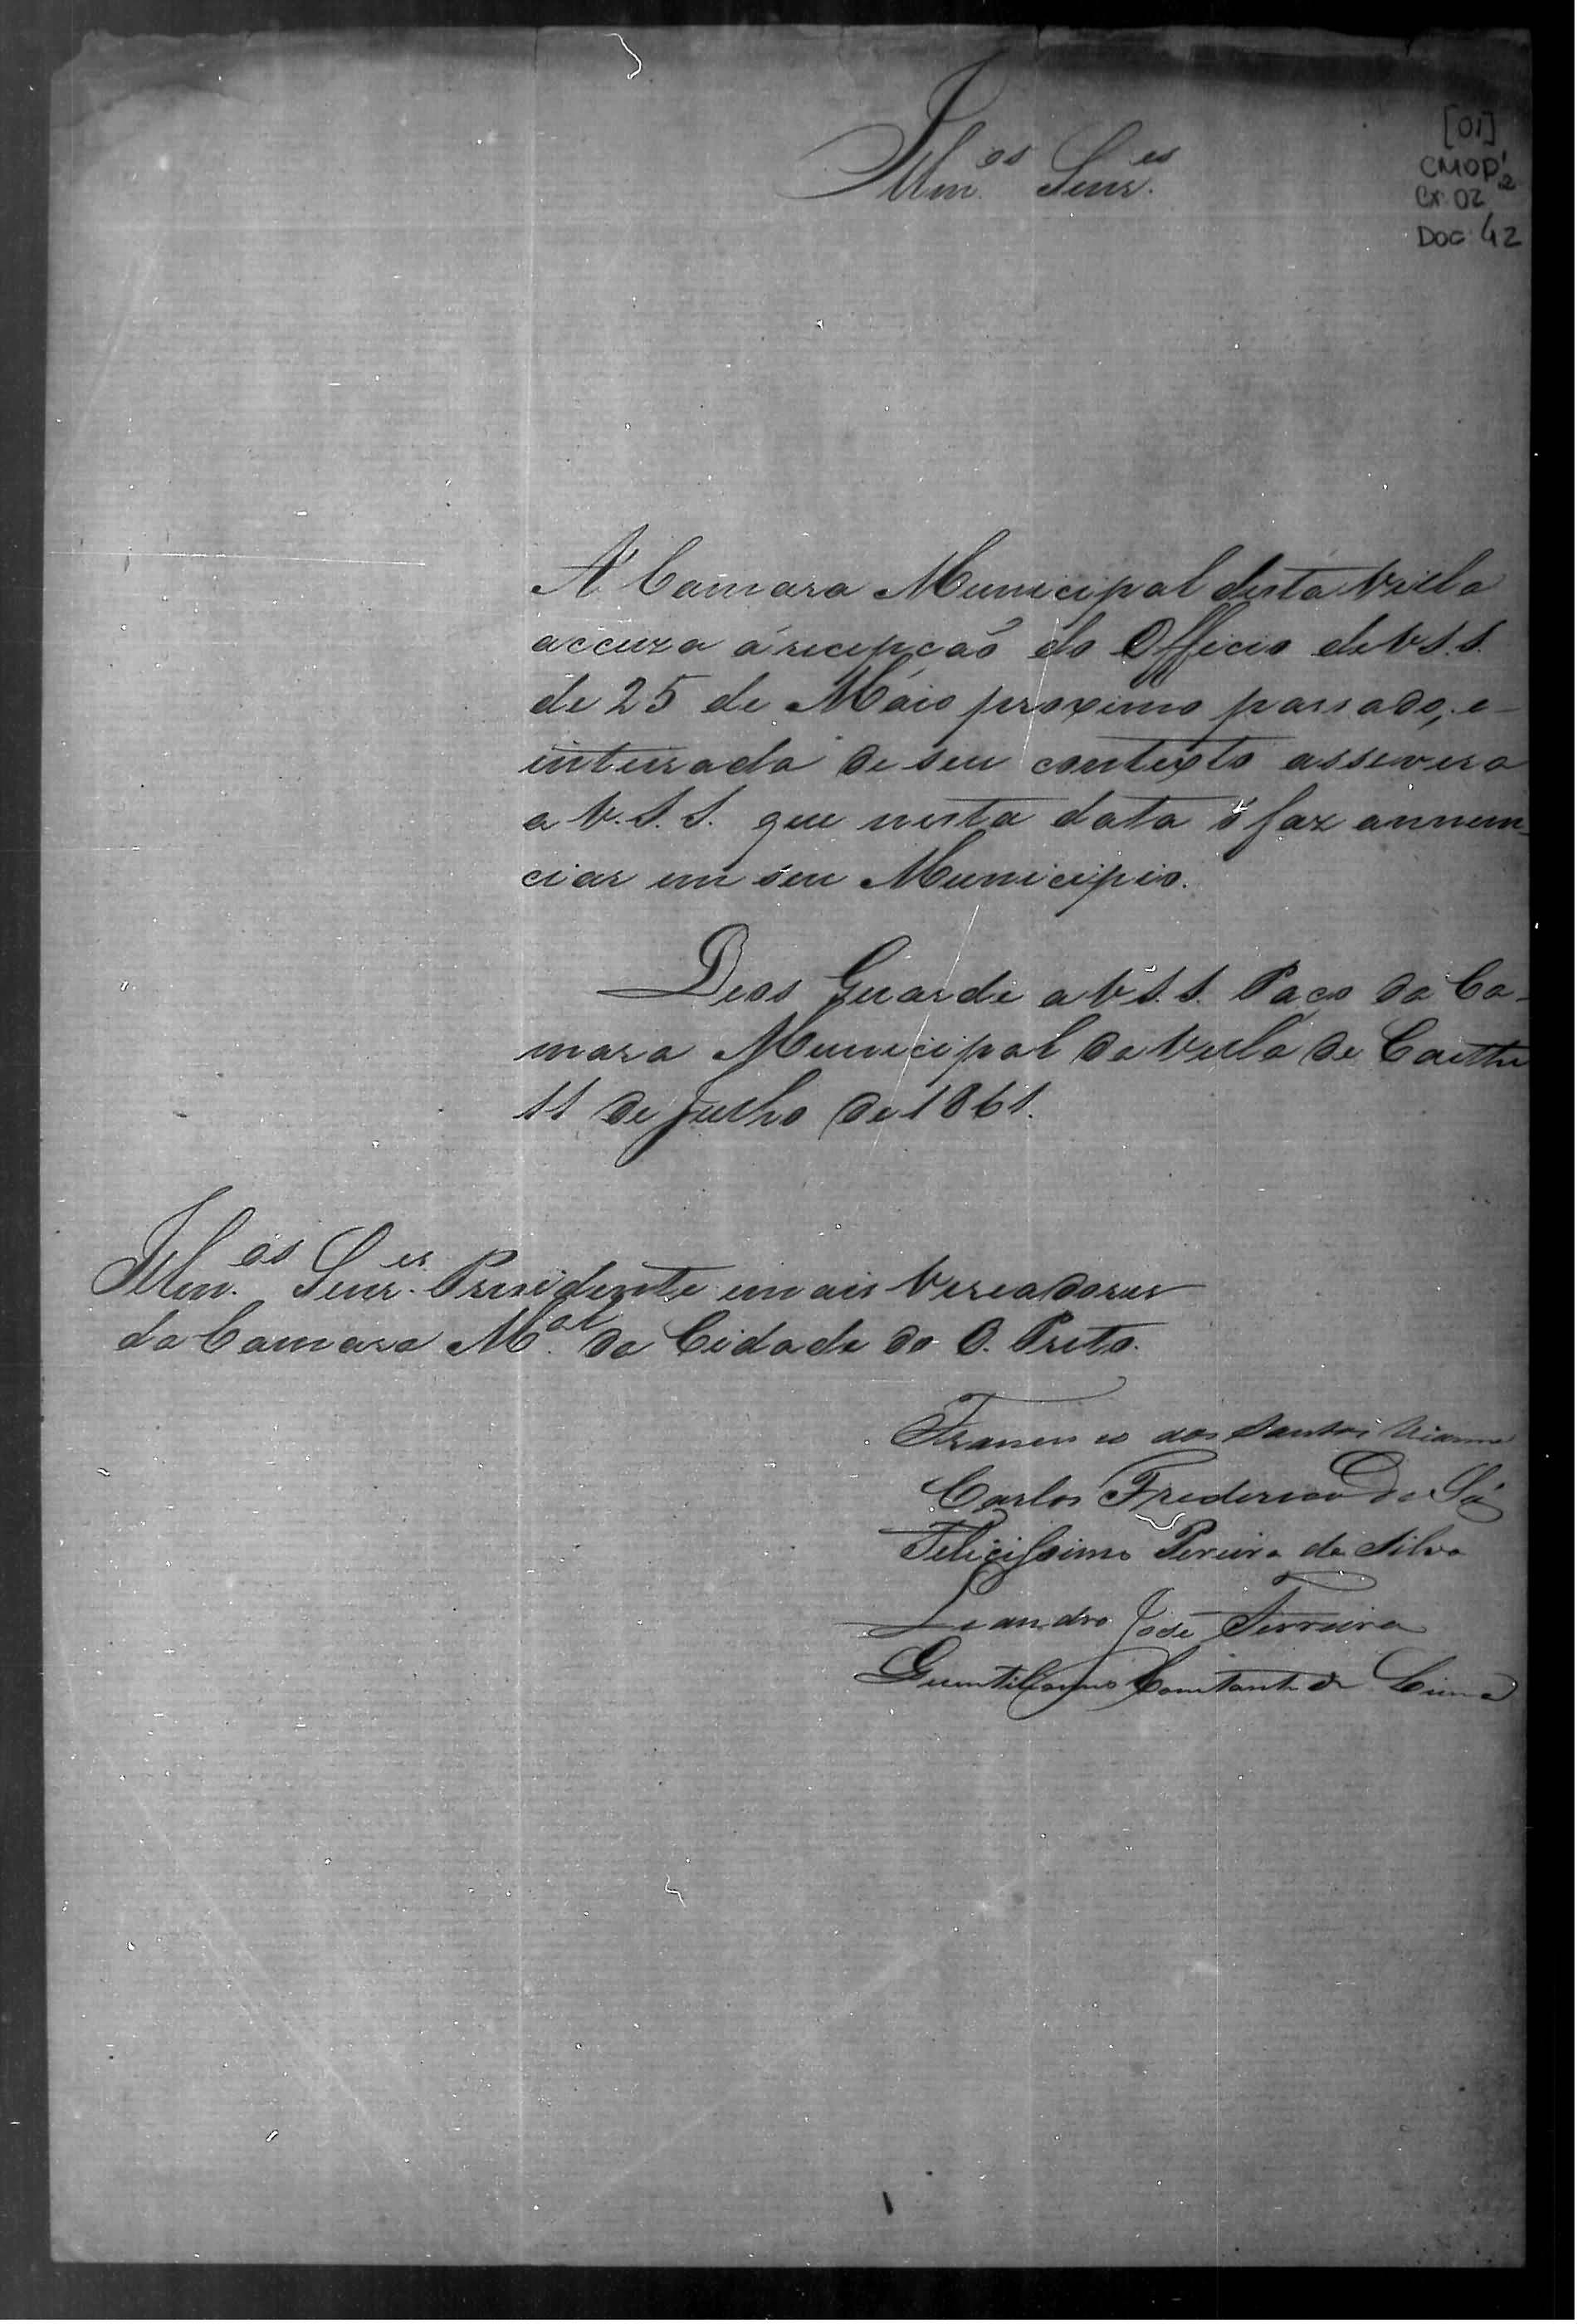 [01]
CMOP 1/2
Cx. 02
Doc. 42
Illm.os Senr.es
A' Camara Municipal desta Villa
accuza á recepção do Officio de V S. S.
de 25 de Maio proximo passado, e
inteirada de seu contexto assevera
a V. S. S. que nesta data o faz annun-
ciar em seu Municipio.
Deos Guarde a V S. S. Paço da Ca-
mara Municipal da Villa de Caethe
11 de Julho de 1861.
Illm.os Senr.es Presidente emais Vereadores
da Camara M.al da Cidade do O. Preto.
Francisco dos Santos Vianna
Carlos Frederico de Sá
Felicissimo Pereira da Silva
Leandro José Ferreira
Constante de Lima